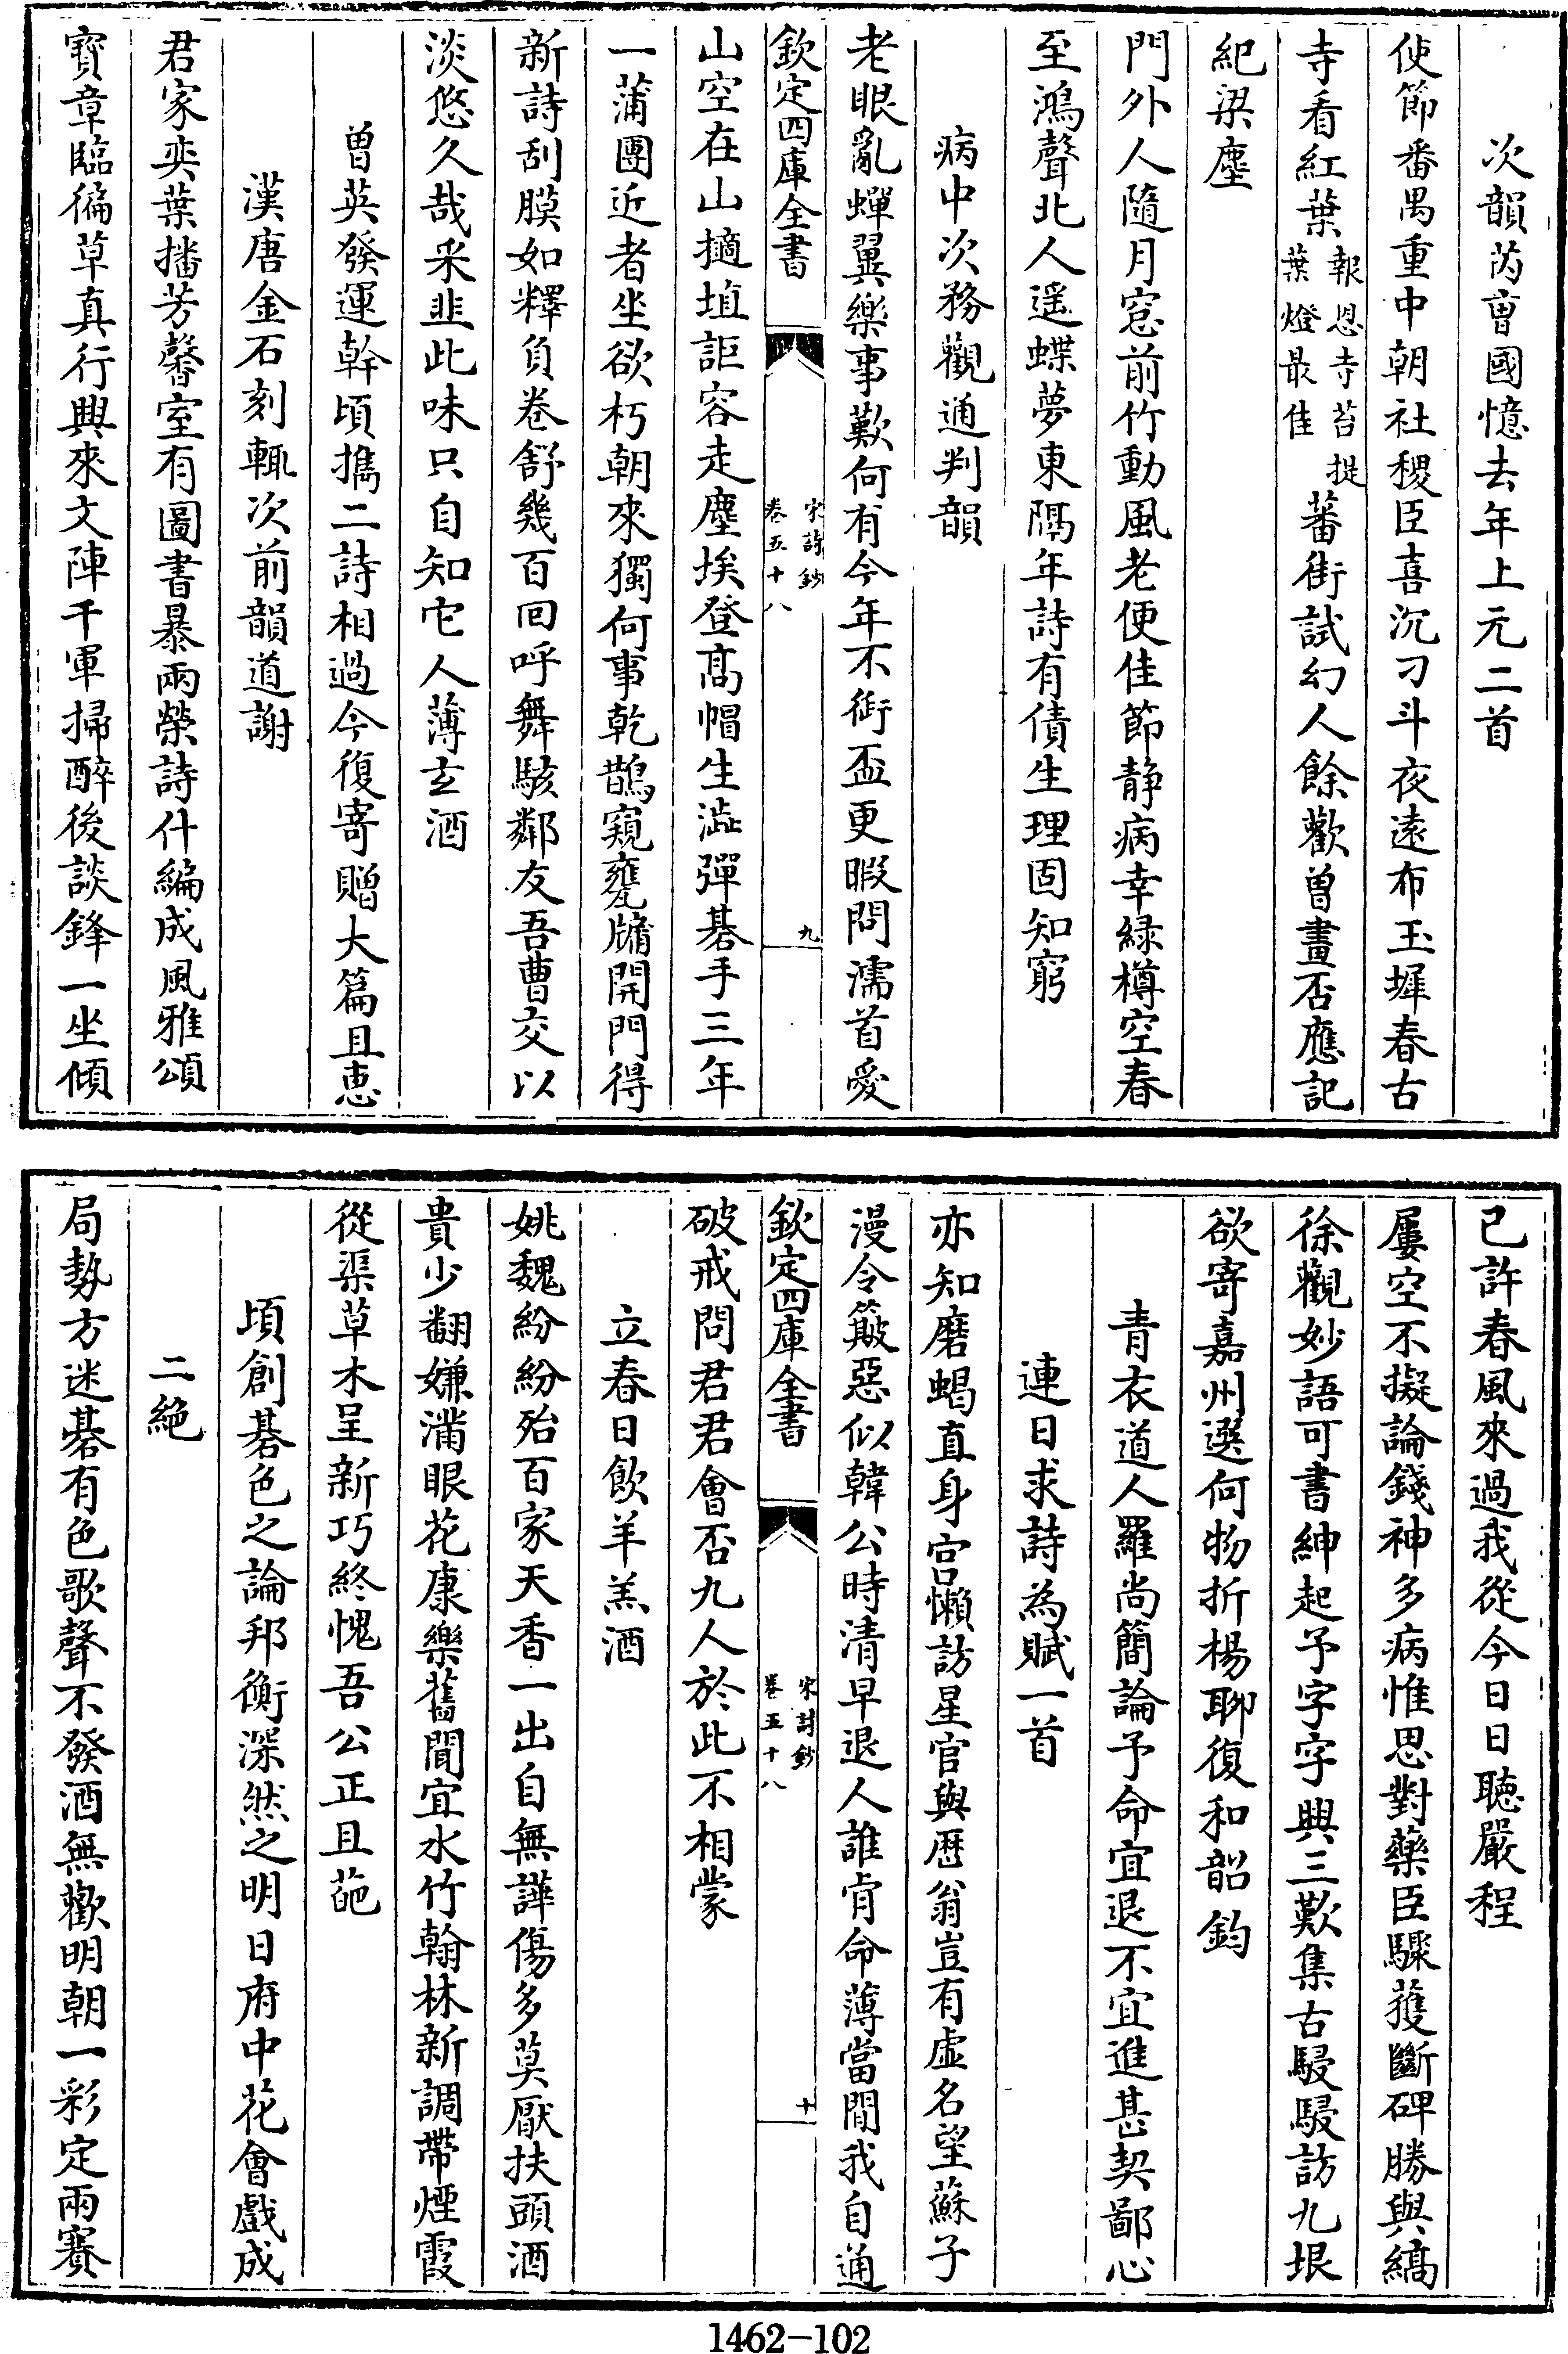 次韻芮曺國憶去年上元二首
使節番禺重中朝社稷臣喜沉刁斗夜遠布玉墀春古
寺看紅葉報恩寺苔提葉燈最佳蕃街試幻人餘歡曽畫否應記
紀梁塵
門外人隨月窓前竹動風老便佳節静病幸緑樽空春
至鴻聲北人遥蝶夢東隔年詩有債生理固知窮
病中次務觀通判韻
老眼亂蟬翼樂事歎何有今年不銜盃更暇問濡首愛
欽定四庫全書
宋詩鈔
卷五十八
九
山空在山擿埴詎容走塵埃登髙帽生澁彈棊手三年
一蒲團近者坐欲朽朝來獨何事乾鵲窺甕牖開門得
新詩刮膜如釋負卷舒幾百回呼舞駭鄰友吾曹交以
淡悠久哉采韭此味只自知它人薄玄酒
曽英發運幹頃攜二詩相過今復寄贈大篇且惠
漢唐金石刻輒次前韻道謝
君家奕葉播芳馨室有圖書暴兩榮詩什編成風雅頌
寳章臨徧草真行興來文陣千軍掃醉後談鋒一坐傾
已許春風來過我從今日日聴嚴程
屢空不擬論錢神多病惟思對藥臣驟獲斷碑勝與縞
徐觀妙語可書紳起予字字興三歎集古駸駸訪九垠
欲寄嘉州選何物折楊聊復和韶鈞
青衣道人羅尚簡論予命宜退不宜進甚契鄙心
連日求詩為賦一首
亦知磨蝎直身宫懶訪星官與厯翁豈有虚名望蘇子
漫令簸惡似韓公時清早退人誰肯命薄當閒我自通
欽定四庫全書
宋詩鈔
卷五十八
十
破戒問君君會否九人於此不相蒙
立春日飲羊羔酒
姚魏紛紛殆百家天香一出自無譁傷多莫厭扶頭酒
貴少翻嫌滿眼花康樂舊聞宜水竹翰林新調帶煙霞
從渠草木呈新巧終愧吾公正且葩
頃創棊色之論邦衡深然之明日府中花會戲成
二絶
局勢方迷棊有色歌聲不發酒無歡明朝一彩定兩賽
1462-102